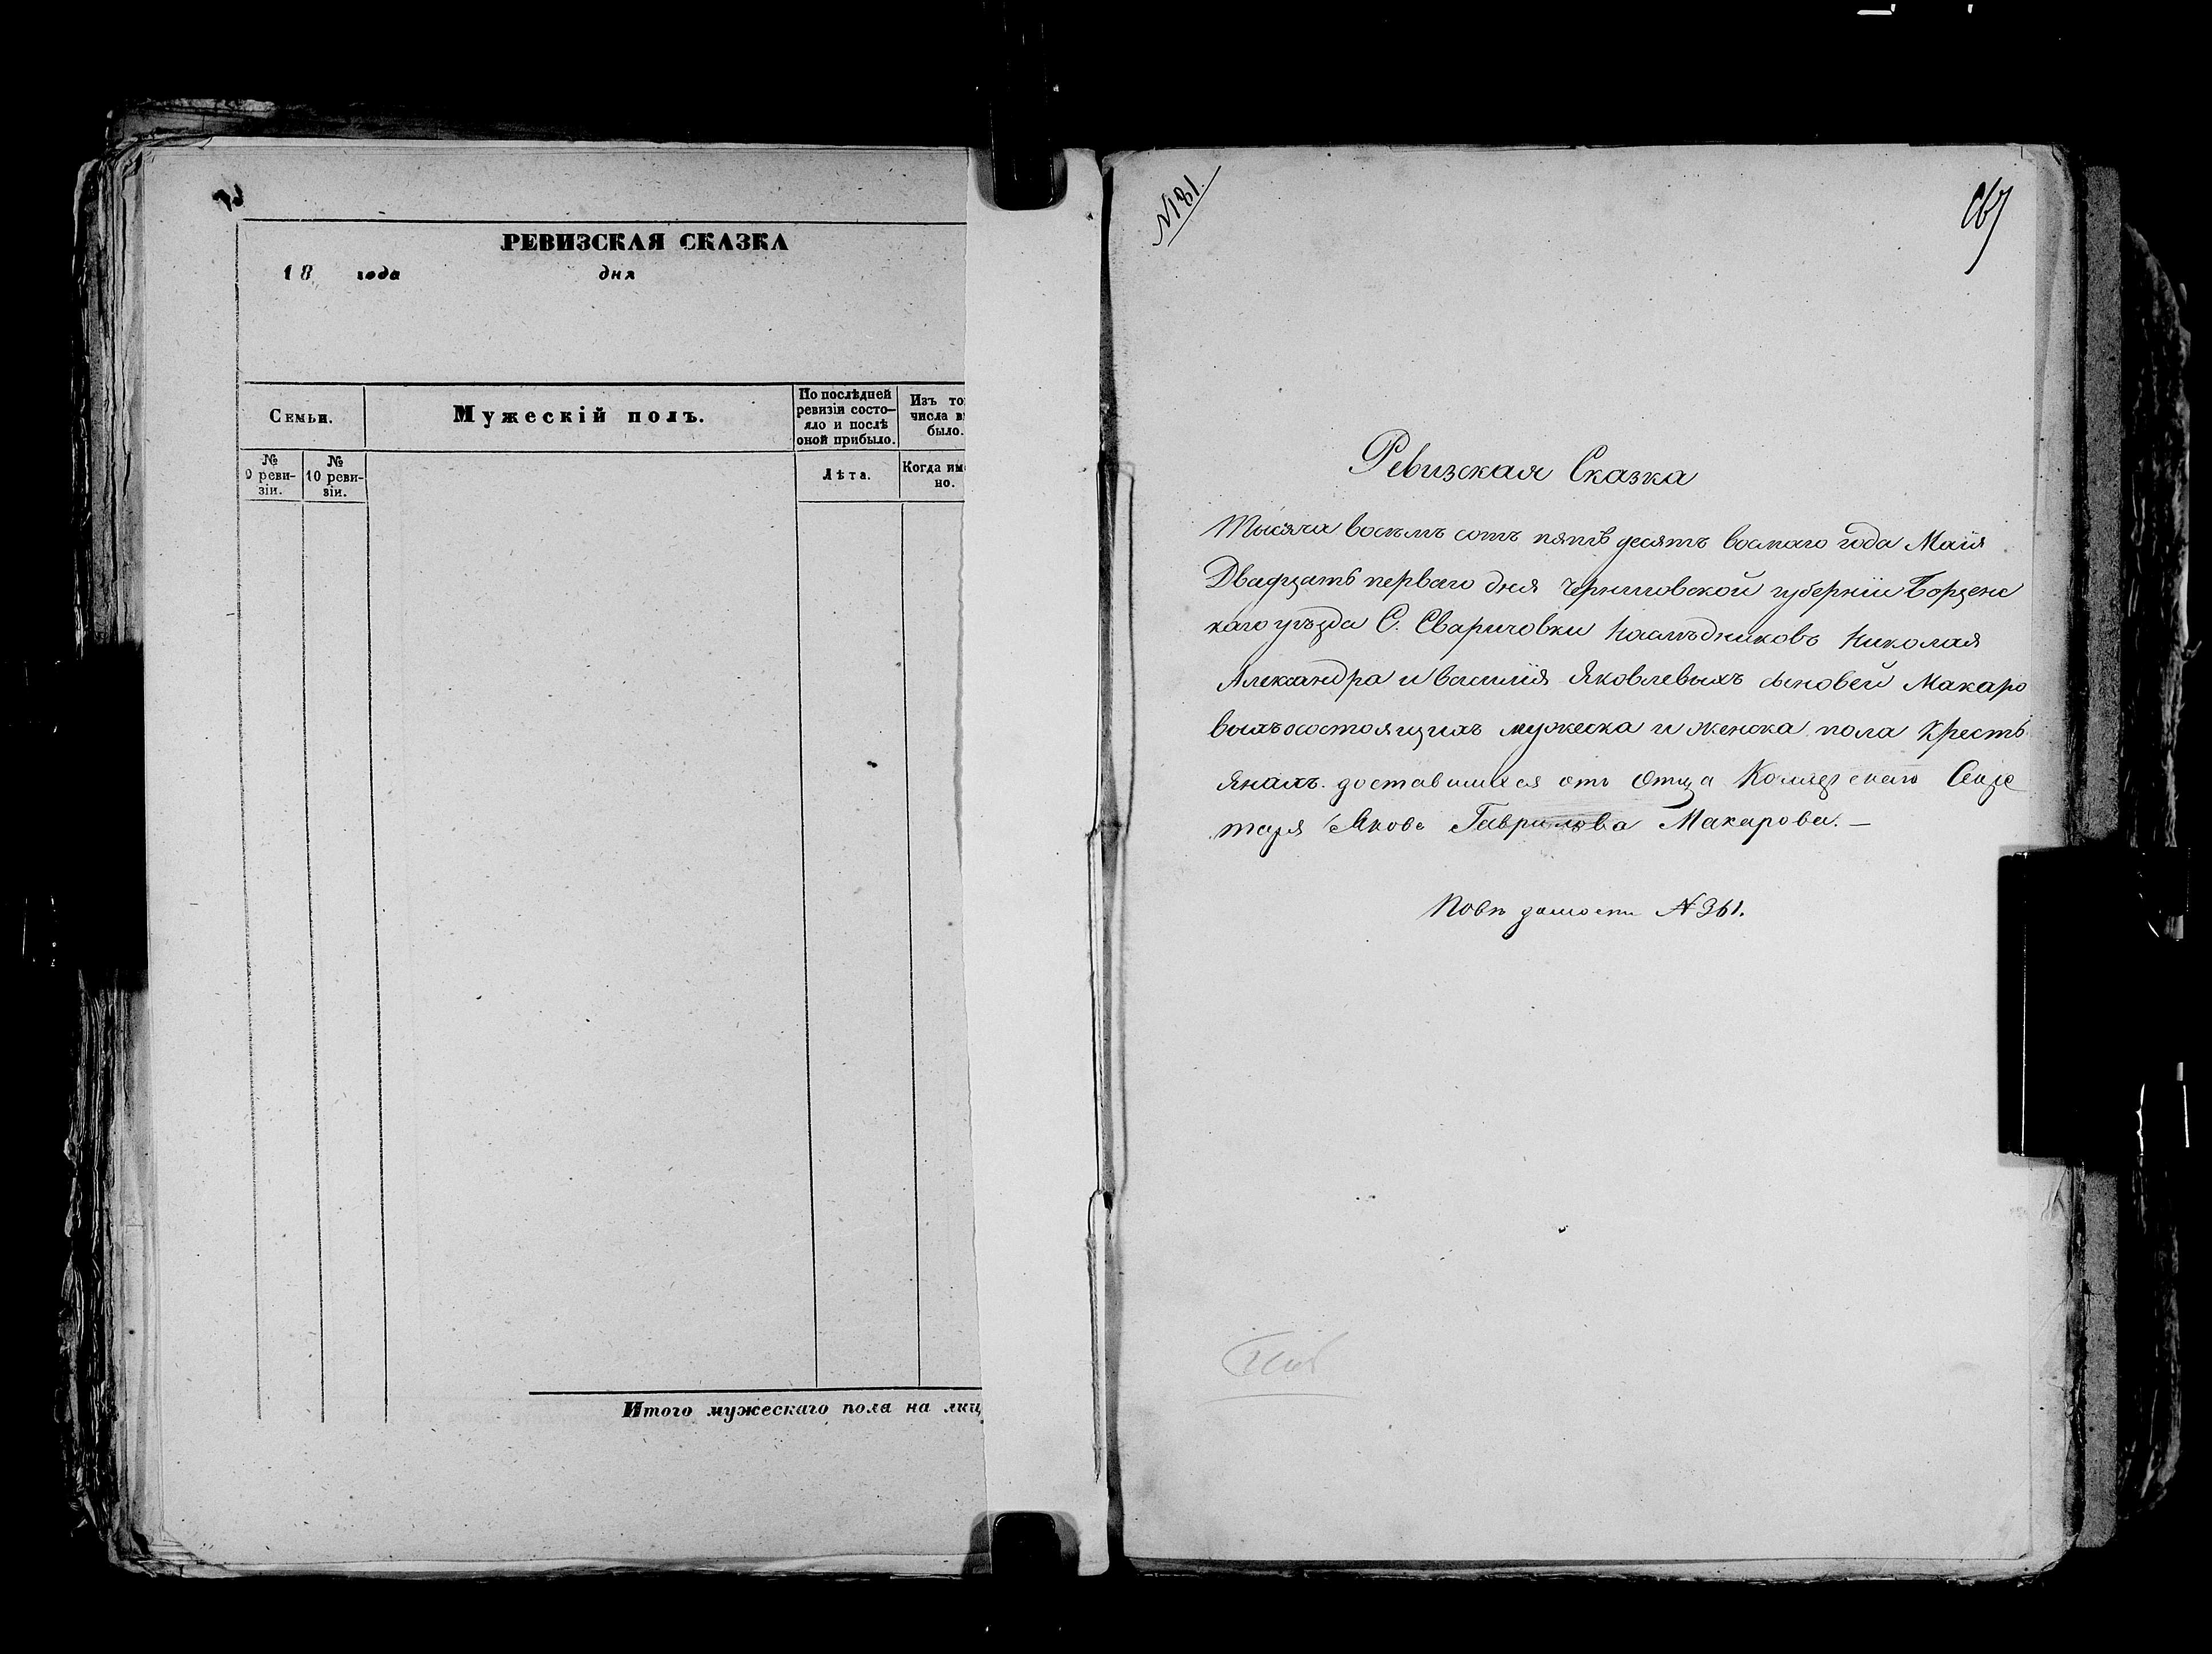 РЕВИЗСКАЯ СКАЗКА
18 года дня
Семьи.
Мужескій полъ.
По послѣдней
ревизіи состо-
яло и послѣ
оной прибыло.
Изъ то
числа в
было.
№
9 реви-
зіи.
№
10 реви-
зіи.
Лѣта.
Когда им
но.
Итого мужескаго пола на лиц
Ревизская Сказка
Тысяча восемь сотъ пять десятъ восмаго года Маія
Двадцать перваго дня Черниговской губерніи Борзенс
каго уѣзда С. Сваричовки Наслѣдниковъ Николая
Александра и Василія Яковлевыхъ сыновей Макаро
выхъ о состоящихъ мужеска и женска пола Кресть
янахъ доставшихся отъ Отца Колежскаго Секре
таря Якова Гаврилова Макарова. —
По вѣдомости № 361.